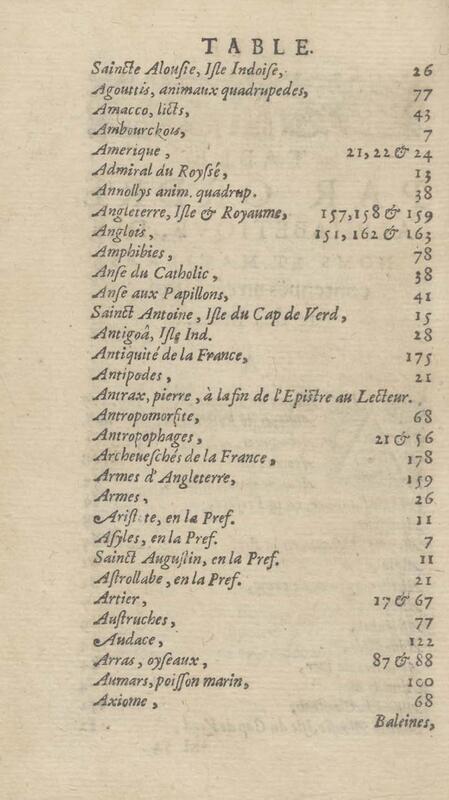 TABLE.
Saincte Alousie, Isle Indoise, 26
Agouttis, animaux quadrupedes, 77
Amacco, licts, 43
Ambourckois, 7
Amerique, 21, 22 & 24
Admiral du Royssé, 13
Annollys anim. quadrup. 38
Angleterre, Isle & Royaume, 157, 158 & 159
Anglois, 151, 162 & 163
Amphibies, 78
Anse du Catholic, 38
Anse aux Papillons, 41
Sainct Antoine, Isle du Cap de Verd, 15
Antigoâ, Isle Ind. 28
Antiquité de la France, 175
Antipodes, 21
Antrax, pierre, à la fin de l'Epistre au Lecteur.
Antropomorfite, 68
Antropophages, 21 & 56
Archeueschés de la France, 178
Armes d'Angleterre, 159
Armes, 26
Aristote, en la Pref. 11
Asyles, en la Pref. 7
Sainct Augustin, en la Pref. 11
Astrollabe, en la Pref. 21
Artier, 17 & 67
Austruches, 77
Audace, 122
Arras, oyseaux, 87 & 88
Aumars, poisson marin, 100
Axiome, 68
Baleines,